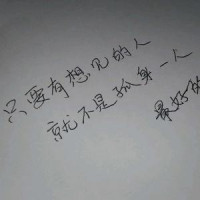 只要有想见的人
就不是孤身一人
最好的